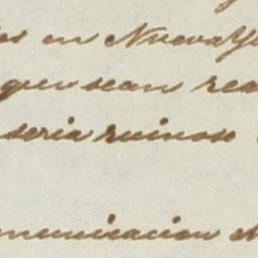 en Nueva Yo
que sean rea
seria ruinoso
municacion